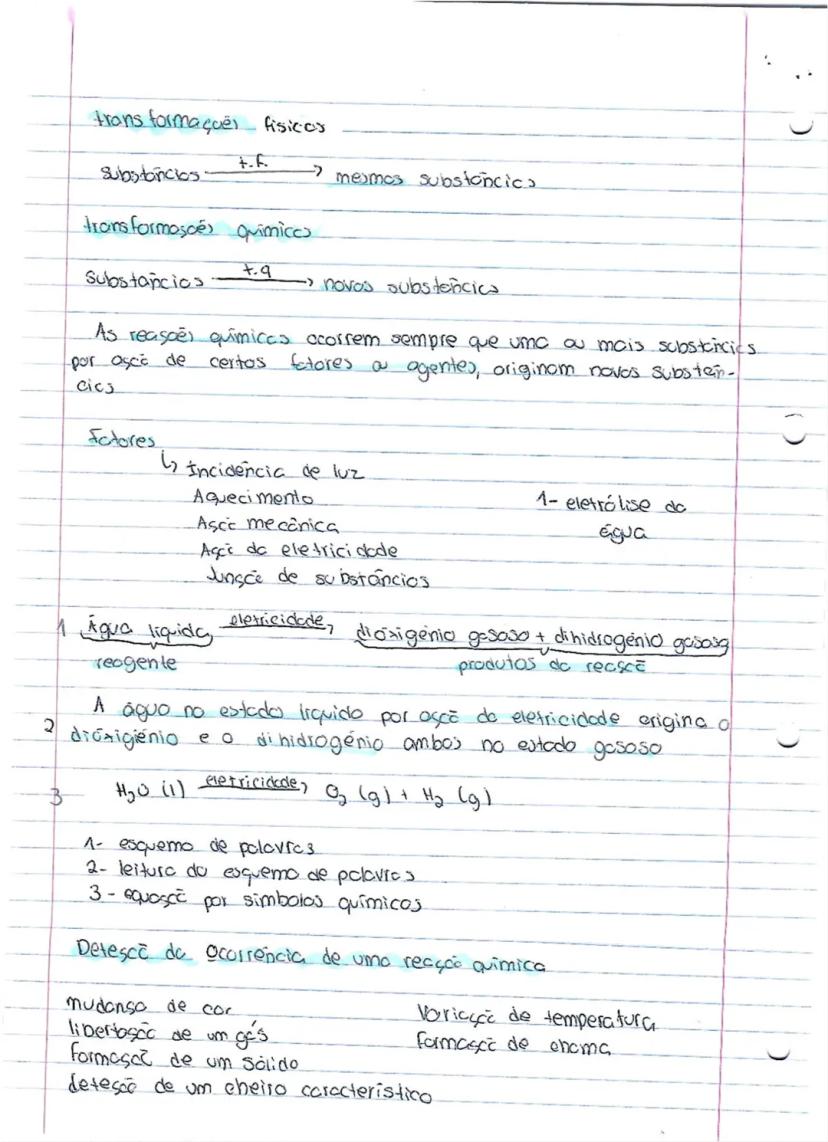 transformações físicas
substâncias t.f. → mesmas substâncias
transformações químicas
substâncias t.q → novas substâncias
As reações químicas ocorrem sempre que uma ou mais substâncias
por ação de certos fatores ou agentes, originam novas substân-
cias
fatores
↳ Incidência de luz
Aquecimento
Ação mecânica
Ação da eletricidade
Junção de substâncias
1- eletrólise da
água
1 Água líquida eletricidade → dioxigénio gasoso + dihidrogénio gasoso
reagente produtos da reação
A água no estado líquido por ação da eletricidade origina o
2 dioxigiénio e o dihidrogénio ambos no estado gasoso
3 H₂O (l) eletricidade → O₂ (g) + H₂ (g)
1- esquema de palavras
2- leitura do esquema de palavras
3- equação por símbolos químicos
Deteção da ocorrência de uma reação química
mudança de cor
libertação de um gás
formação de um sólido
deteção de um cheiro característico
Variação de temperatura
formação de chama